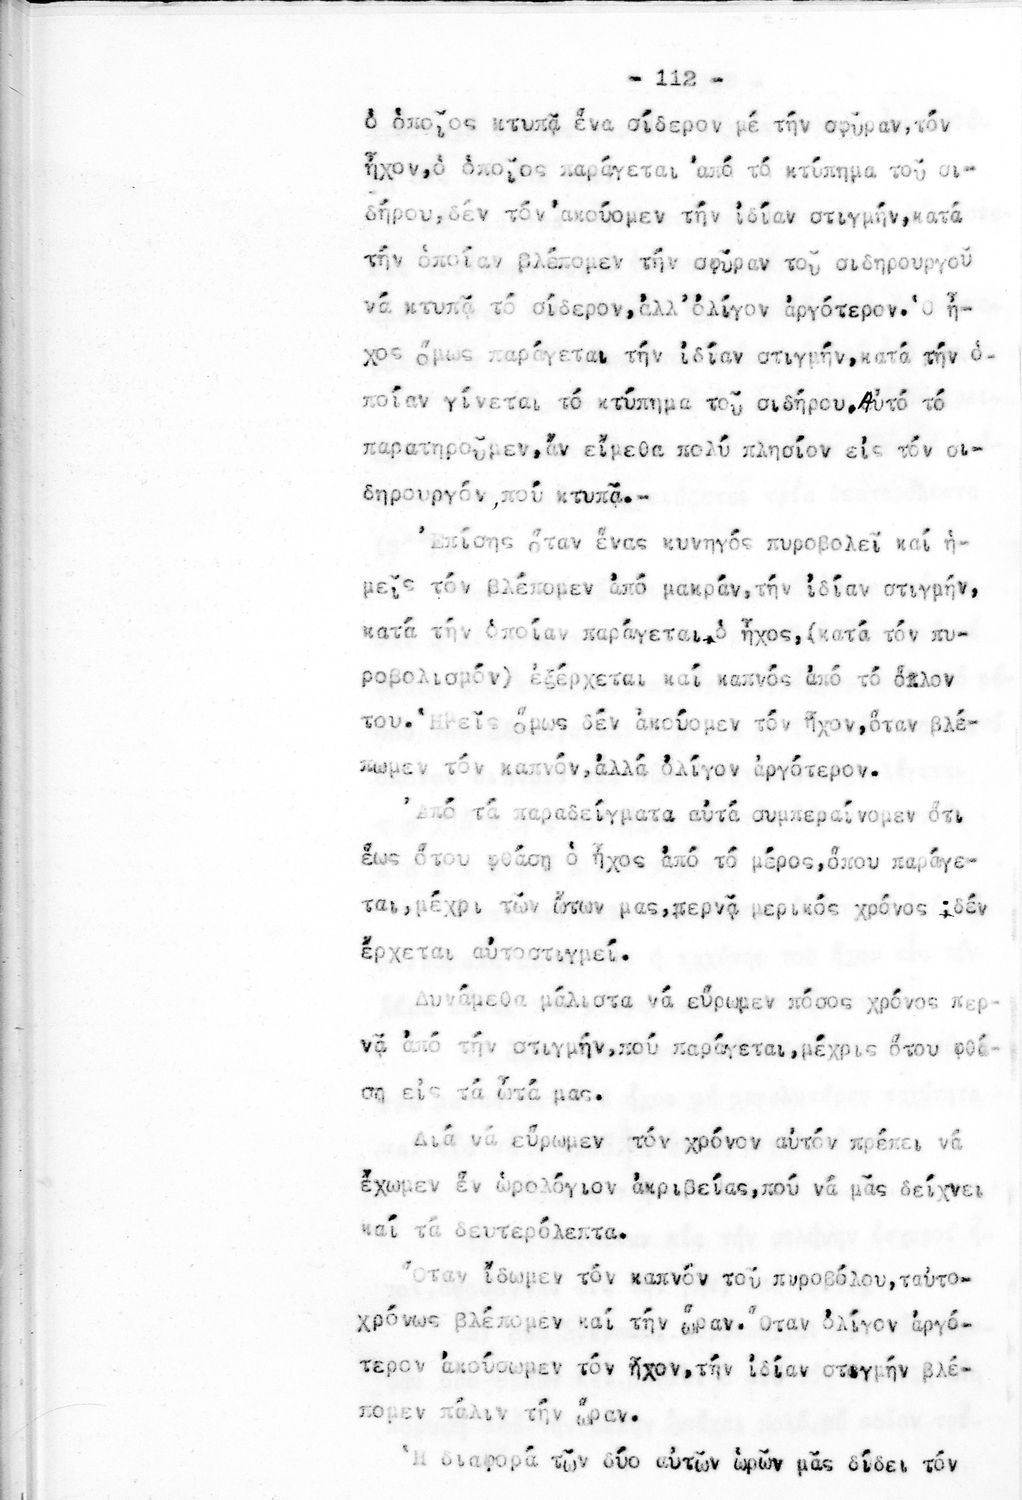 - 112 -
ὁ ὁποῖος κτυπᾷ ἕνα σίδερον μέ τήν σφῦραν,τόν
ἦχον,ὁ ὁποῖος παράγεται ἀπό τό κτύπημα τοῦ σι-
δήρου,δέν τόν ἀκούομεν τήν ἰδίαν στιγμήν,κατά
τήν ὁποίαν βλέπομεν τήν σφῦραν τοῦ σιδηρουργοῦ
νά κτυπᾷ τό σίδερον,ἀλλ'ὀλίγον ἀργότερον.Ὁ ἦ-
χος ὅμως παράγεται τήν ἰδίαν στιγμήν,κατά τήν ὁ-
ποίαν γίνεται τό κτύπημα τοῦ σιδήρου.Αὐτό τό
παρατηροῦμεν,ἄν εἴμεθα πολύ πλησίον εἰς τόν σι-
δηρουργόν,πού κτυπᾷ.-
Ἐπίσης ὅταν ἕνας κυνηγός πυροβολεῖ καί ἡ-
μεῖς τόν βλέπομεν ἀπό μακράν,τήν ἰδίαν στιγμήν,
κατά τήν ὁποίαν παράγεται ὁ ἦχος,(κατά τόν πυ-
ροβολισμόν) ἐξέρχεται καί καπνός ἀπό τό ὅπλον
του.Ἡμεῖς ὅμως δέν ἀκούομεν τόν ἦχον,ὅταν βλέ-
πωμεν τόν καπνόν,ἀλλά ὀλίγον ἀργότερον.
Ἀπό τά παραδείγματα αὐτά συμπεραίνομεν ὅτι
ἕως ὅτου φθάσῃ ὁ ἦχος ἀπό τό μέρος,ὅπου παράγε-
ται,μέχρι τῶν ὤτων μας,περνᾷ μερικός χρόνος ;δέν
ἔρχεται αὐτοστιγμεί.
Δυνάμεθα μάλιστα νά εὕρωμεν πόσος χρόνος περ-
νᾷ ἀπό τήν στιγμήν,πού παράγεται,μέχρις ὅτου φθά-
σῃ εἰς τά ὦτά μας.
Διά νά εὕρωμεν τόν χρόνον αὐτόν πρέπει νά
ἔχωμεν ἕν ὡρολόγιον ἀκριβείας,πού νά μᾶς δείχνει
καί τά δευτερόλεπτα.
Ὅταν ἴδωμεν τόν καπνόν τοῦ πυροβόλου,ταὐτο-
χρόνως βλέπομεν καί τήν ὥραν.Ὅταν ὀλίγον ἀργό-
τερον ἀκούσωμεν τόν ἦχον,τήν ἰδίαν στιγμήν βλέ-
πομεν πάλιν τήν ὥραν.
Ἡ διαφορά τῶν δύο αὐτῶν ὡρῶν μᾶς δίδει τόν